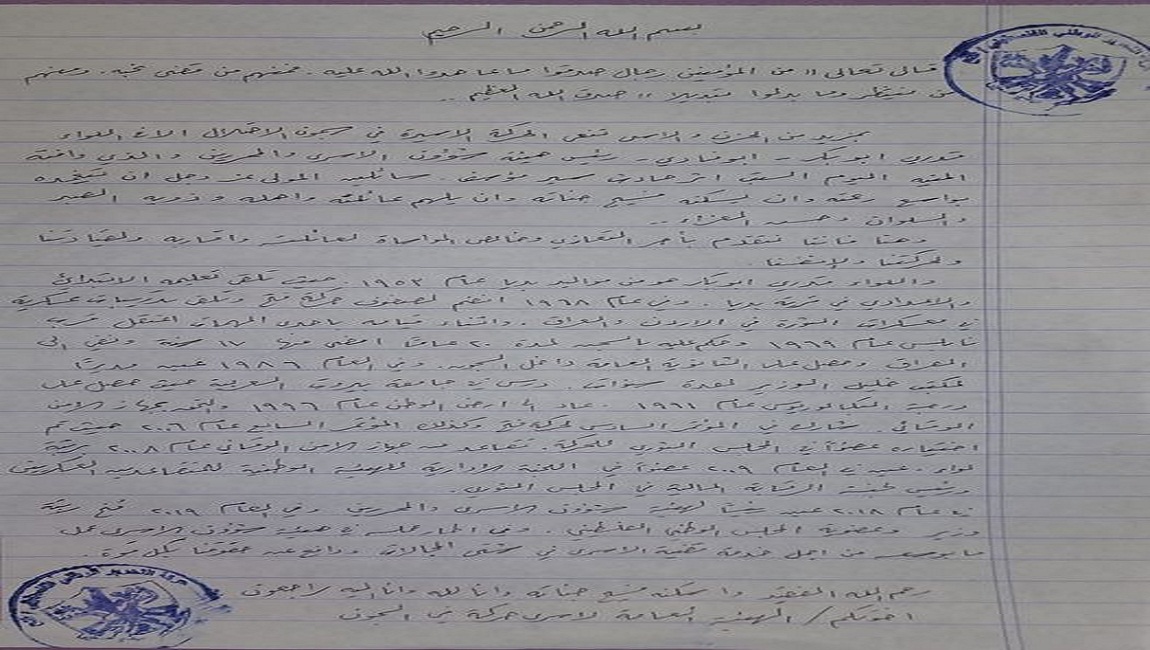 بسم الله الرحمن الرحيم
قال تعالى " من المؤمنين رجال صدقوا ما عاهدوا الله عليه . فمنهم من قضى نحبه . ومنهم
من ينتظر وما بدلوا تبديلا " صدق الله العظيم ..
بمزيد من الحزن والاسى تنعى الحركة الاسيرة في سجون الاحتلال الاخ اللواء
قدري ابو بكر - ابو فادي - رئيس هيئة شؤون الاسرى والمحررين والذي وافته
المنية اليوم السبت اثر حادث سير مؤسف . سائلين المولى عز وجل ان يتغمده
بواسع رحمته وان يسكنه فسيح جناته وان يلهم عائلته واهله وذويه الصبر
والسلوان وحسن العزاء ..
وهنا فاننا نتقدم بأحر التعازي وخالص المواساة لعائلته واقاربه ولقيادتنا
ولحركتنا ولشعبنا .
واللواء قدري ابو بكر هو من مواليد بديا عام ١٩٥٣ . حيث تلقى تعليمه الابتدائي
والاعدادي في قرية بديا . وفي عام ١٩٦٨ انضم لصفوف حركة فتح وتلقى تدريبات عسكرية
في معسكرات الثورة في الاردن والعراق . واثناء قيامه باحدى المهمات اعتقل قرب
نابلس عام ١٩٦٩ وحكم عليه بالسجن لمدة ٢٠ عاما امضى منها ١٧ سنة ونفي الى
العراق . وحصل على الثانوية العامة داخل السجن . وفي العام ١٩٨٦ عين مديرا
لمكتب خليل الوزير لعدة سنوات . درس في جامعة بيروت العربية حيث حصل على
درجة البكالوريوس عام ١٩٩١ . عاد الى ارض الوطن عام ١٩٩٦ والتحق بجهاز الامن
الوقائي . شارك في المؤتمر السادس لحركة فتح وكذلك المؤتمر السابع عام ٢٠١٦ حيث تم
اختياره عضوا في المجلس الثوري للحركة . تقاعد من جهاز الامن الوقائي عام ٢٠٠٨ برتبة
لواء . عين في العام ٢٠٠٩ عضوا في اللجنة الادارية للهيئة الوطنية للمتقاعدين العسكريين
ورئيس لجنة الرقابة المالية في المجلس الثوري .
في عام ٢٠١٨ عين رئيسا لهيئة شؤون الاسرى والمحررين وفي العام ٢٠١٩ مُنح رتبة
وزير وعضوية المجلس الوطني الفلسطيني . وفي اطار عمله في هيئة شؤون الاسرى عمل
ما بوسعه من اجل خدمة قضية الاسرى في شتى المجالات ودافع عن حقوقنا بكل قوة .
رحم الله الفقيد واسكنه فسيح جناته وانا لله وانا اليه راجعون
اخوتكم / الهيئة العامة لاسرى حركة فتح السجون